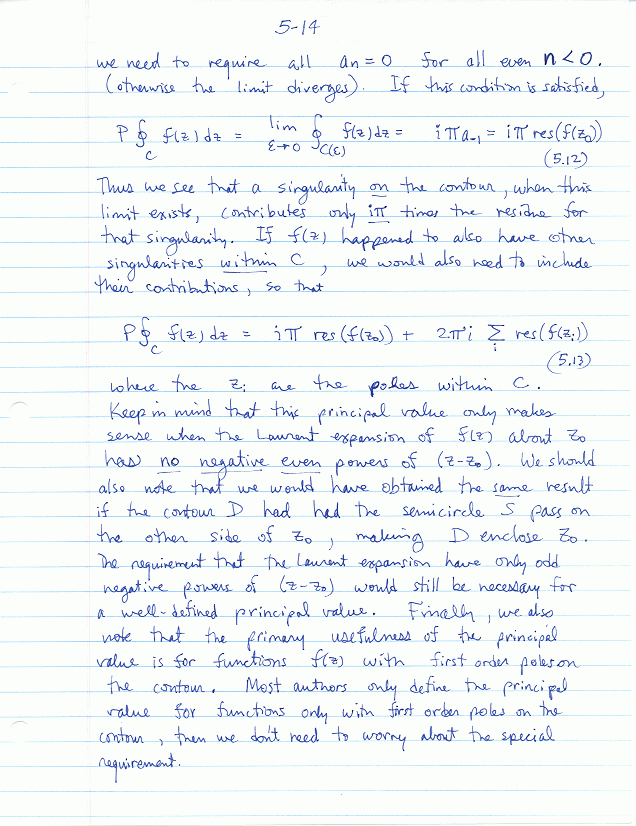 5-14
we need to require all an = 0 for all even n < 0.
(otherwise the limit diverges). If this condition is satisfied,
P∮_C f(z) dz = lim_{ε→0} ∮_{C(ε)} f(z) dz = iπ a₋₁ = iπ res(f(z₀))
(5.12)
Thus we see that a singularity on the contour, when this
limit exists, contributes only iπ times the residue for
that singularity. If f(z) happened to also have other
singularities within C, we would also need to include
their contributions, so that
P∮_C f(z) dz = iπ res(f(z₀)) + 2πi Σ_i res(f(z_i))
(5.13)
where the z_i are the poles within C.
Keep in mind that this principal value only makes
sense when the Laurent expansion of f(z) about z₀
has no negative even powers of (z-z₀). We should
also note that we would have obtained the same result
if the contour D had had the semicircle S pass on
the other side of z₀, making D enclose z₀.
The requirement that the Laurent expansion have only odd
negative powers of (z-z₀) would still be necessary for
a well-defined principal value. Finally, we also
note that the primary usefulness of the principal
value is for functions f(z) with first order poles on
the contour. Most authors only define the principal
value for functions only with first order poles on the
contour, then we don't need to worry about the special
requirement.